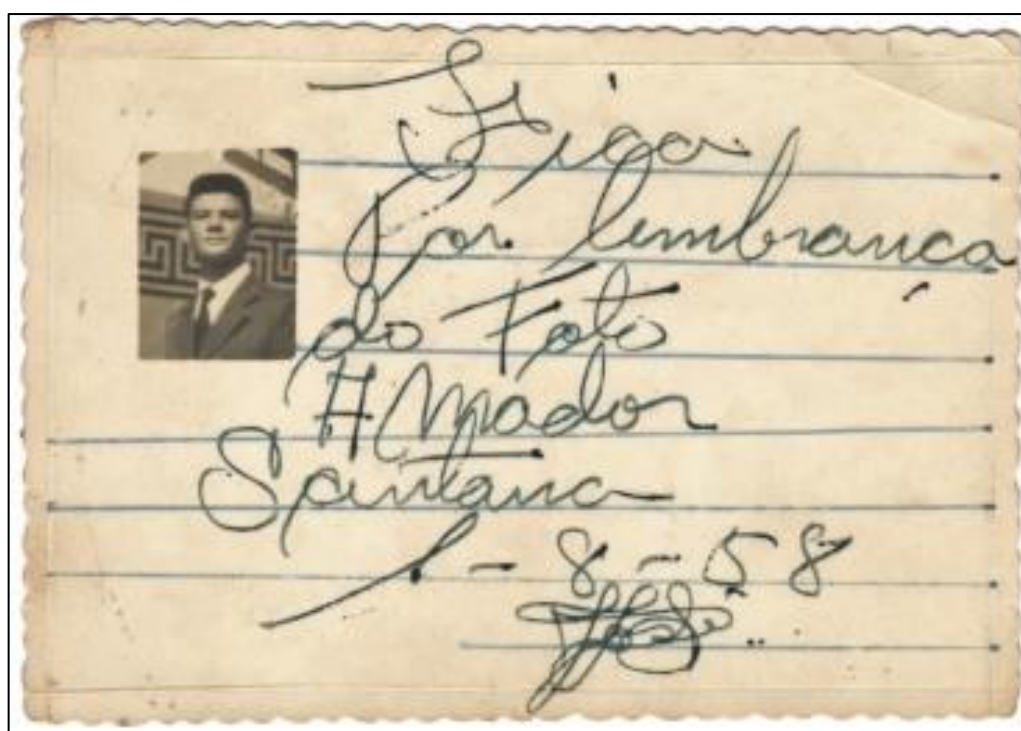 Fica
Por lembrança
do Foto
Amador
Santana
1 - 8 - 58